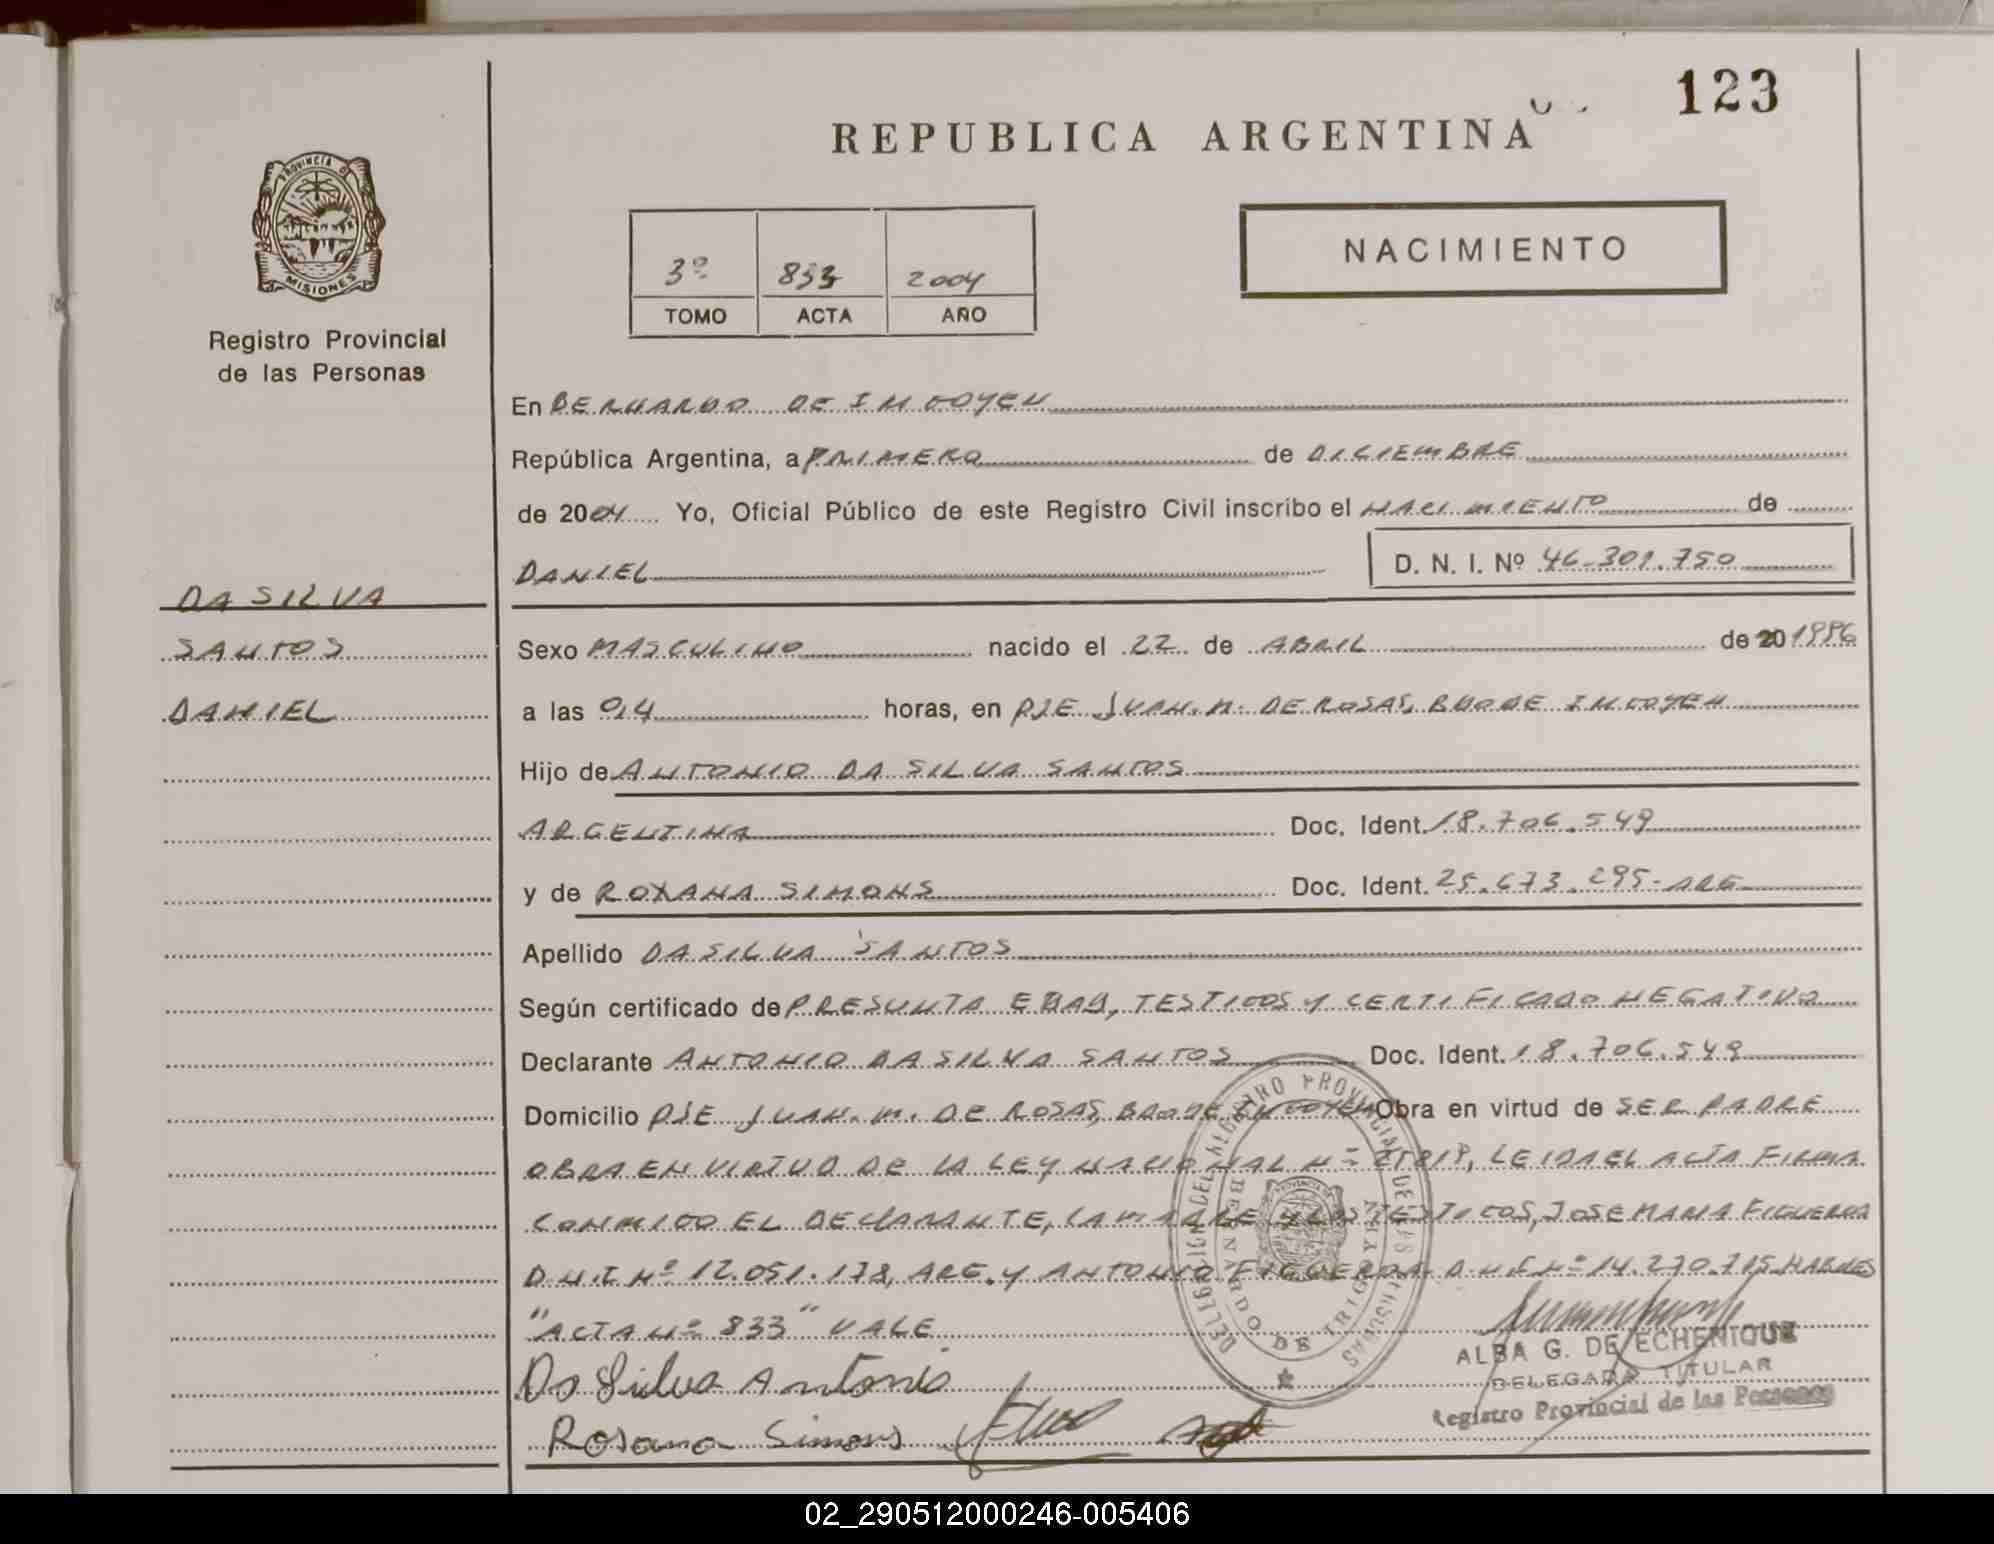 123
REPUBLICA ARGENTINA
PROVINCIA DE
MISIONES
Registro Provincial
de las Personas
3º 833 2004
TOMO ACTA AÑO
NACIMIENTO
En BERNARDO DE IRIGOYEN
República Argentina, a PRIMERO de DICIEMBRE
de 2004 Yo, Oficial Público de este Registro Civil inscribo el NACIMIENTO de
DANIEL D. N. I. Nº 46.301.750
DA SILVA
SANTOS
DANIEL
Sexo MASCULINO nacido el 22 de ABRIL de 20 1996
a las 04 horas, en PJE JUAN.M. DE ROSAS, BDO DE IRIGOYEN
Hijo de ANTONIO DA SILVA SANTOS
ARGENTINA Doc. Ident. 18.706.549
y de ROXANA SIMONS Doc. Ident. 25.673.295- ARG
Apellido DA SILVA SANTOS
Según certificado de PRESUNTA EDAD, TESTIGOS Y CERTIFICADO NEGATIVO
Declarante ANTONIO DA SILVA SANTOS Doc. Ident. 18.706.549
Domicilio PJE JUAN.M. DE ROSAS, BDO DE IRIGOYEN Obra en virtud de SER PADRE
OBRA EN VIRTUD DE LA LEY NACIONAL Nº 25819, LEIDA EL ACTA FIRMA
CONMIGO EL DECLARANTE, LA MADRE Y LOS TESTIGOS, JOSE MARIA FIGUEROA
D.N.I Nº 12.051.178, ARG. Y ANTONIO FIGUEROA D.N.I Nº 14.270.715
"ACTA Nº 833" VALE
DELEGACION DEL REGISTRO PROVINCIAL DE LAS PERSONAS
BERNARDO DE IRIGOYEN
Da Silva Antonio
Rosana Simons
ALBA G. DE ECHENIQUE
DELEGADA TITULAR
Registro Provincial de las Personas
02_290512000246-005406